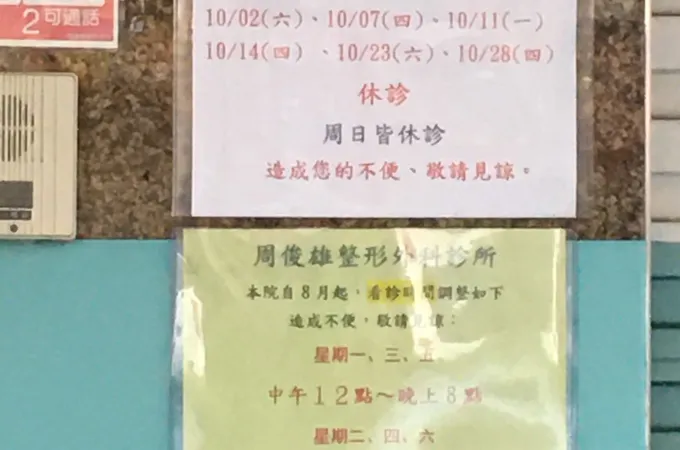 2可通話
10/02(六)、10/07(四)、10/11(一)
10/14(四)、10/23(六)、10/28(四)
休診
周日皆休診
造成您的不便、敬請見諒。
周俊雄整形外科診所
本院自8月起，看診時間調整如下
造成不便，敬請見諒：
星期一、三、五
中午12點～晚上8點
星期二、四、六